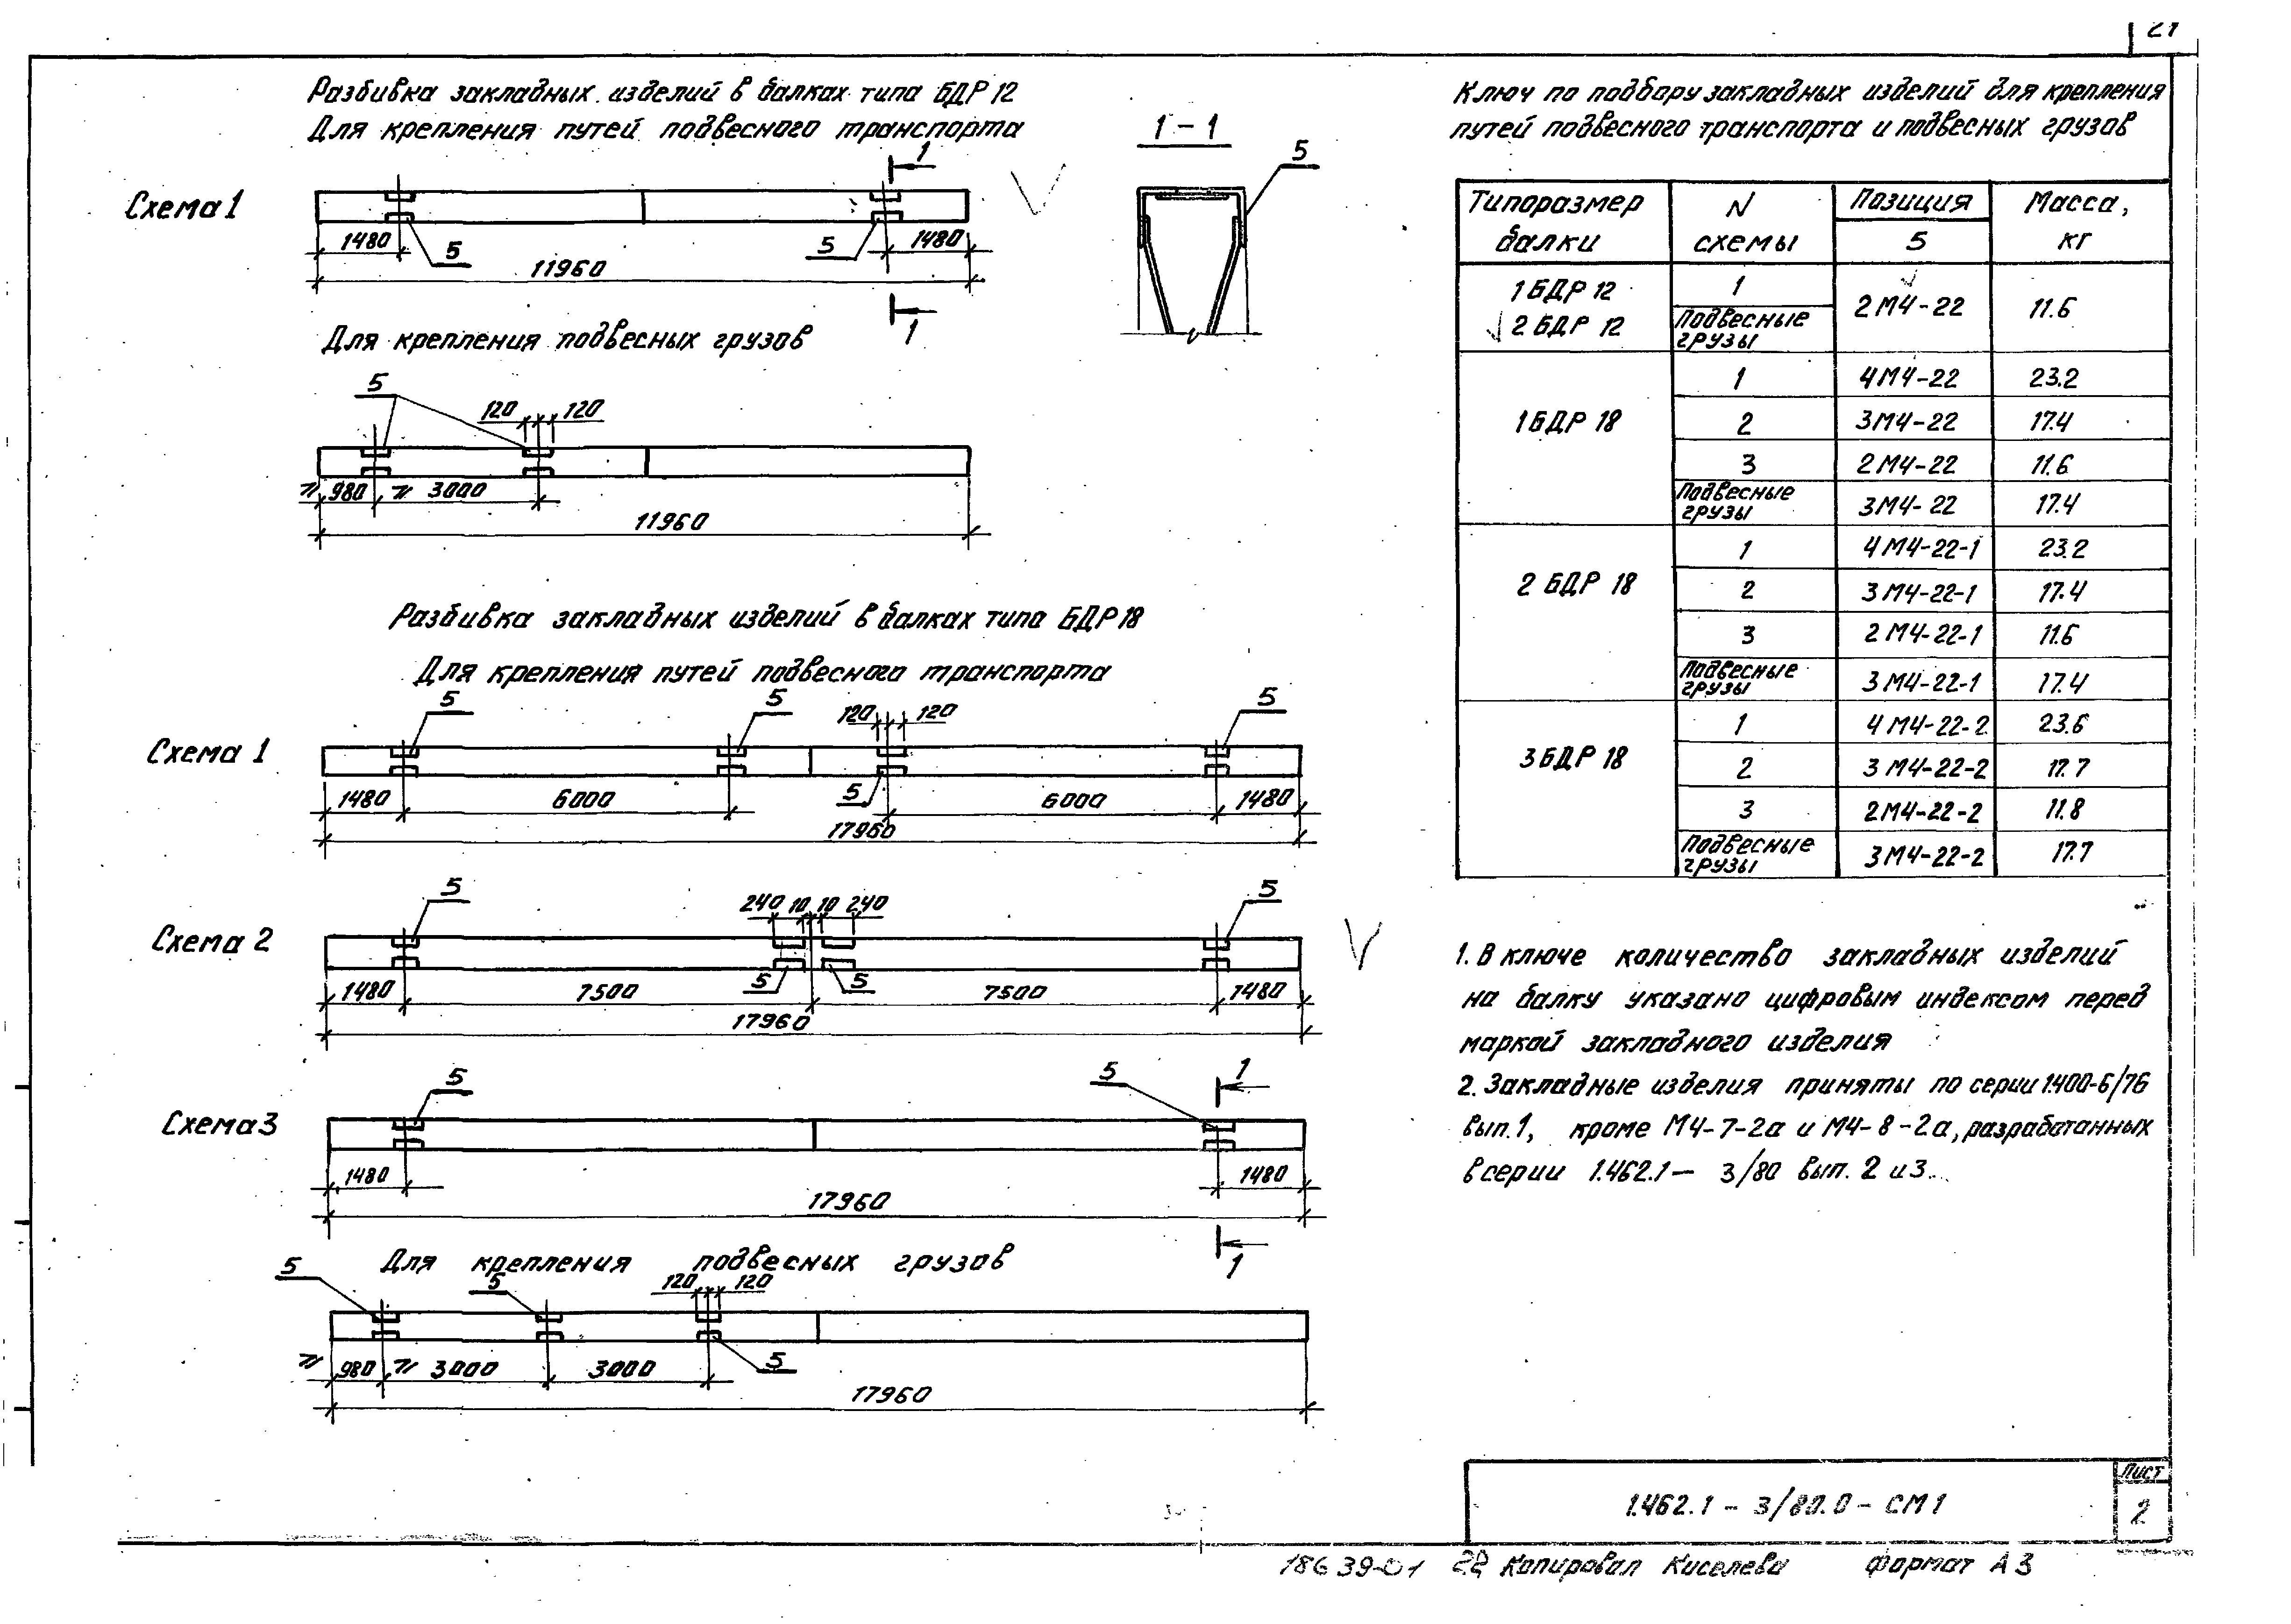 21
Разбивка закладных изделий в балках типа БДР 12
Для крепления путей подвесного транспорта
1
1-1
5
Схема 1
1480
5
5
1480
11960
1
Для крепления подвесных грузов
5
120
120
980
3000
11960
Разбивка закладных изделий в балках типа БДР 18
Для крепления путей подвесного транспорта
Схема 1
5
5
120
120
5
1480
6000
5
6000
1480
17960
Схема 2
5
240 10 10 240
5
5
5
1480
7500
7500
1480
17960
Схема 3
5
5
1
1480
1480
17960
1
Для крепления подвесных грузов
5
5
120
120
980
3000
3000
5
17960
Ключ по подбору закладных изделий для крепления
путей подвесного транспорта и подвесных грузов
Типоразмер балки
N схемы
Позиция 5
Масса, кг
1 БДР 12
2 БДР 12
1
Подвесные грузы
2 М4-22
11.6
1 БДР 18
1 4М4-22 23.2
2 3М4-22 17.4
3 2М4-22 11.6
Подвесные грузы 3М4-22 17.4
2 БДР 18
1 4 М4-22-1 23.2
2 3 М4-22-1 17.4
3 2 М4-22-1 11.6
Подвесные грузы 3 М4-22-1 17.4
3 БДР 18
1 4 М4-22-2 23.6
2 3 М4-22-2 17.7
3 2М4-22-2 11.8
Подвесные грузы 3 М4-22-2 17.7
1. В ключе количество закладных изделий
на балку указано цифровым индексом перед
маркой закладного изделия
2. Закладные изделия приняты по серии 1.400-6/76
вып.1, кроме М4-7-2а и М4-8-2а, разработанных
в серии 1.462.1-3/80 вып. 2 и 3.
1.462.1-3/80.0-СМ1
Лист
2
18639-01 22 Копировал Киселева Формат А3